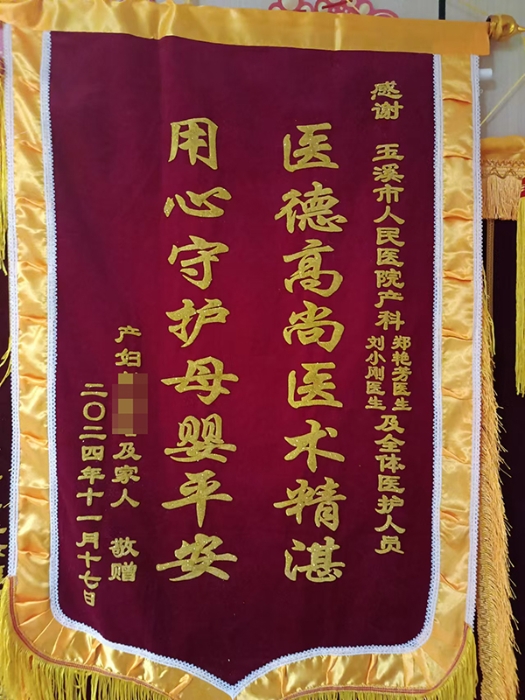 感谢 玉溪市人民医院产科 郑艳芳医生 刘小刚医生 及全体医护人员
医德高尚医术精湛
用心守护母婴平安
产妇 及家人 敬赠
二〇二四年十一月十七日